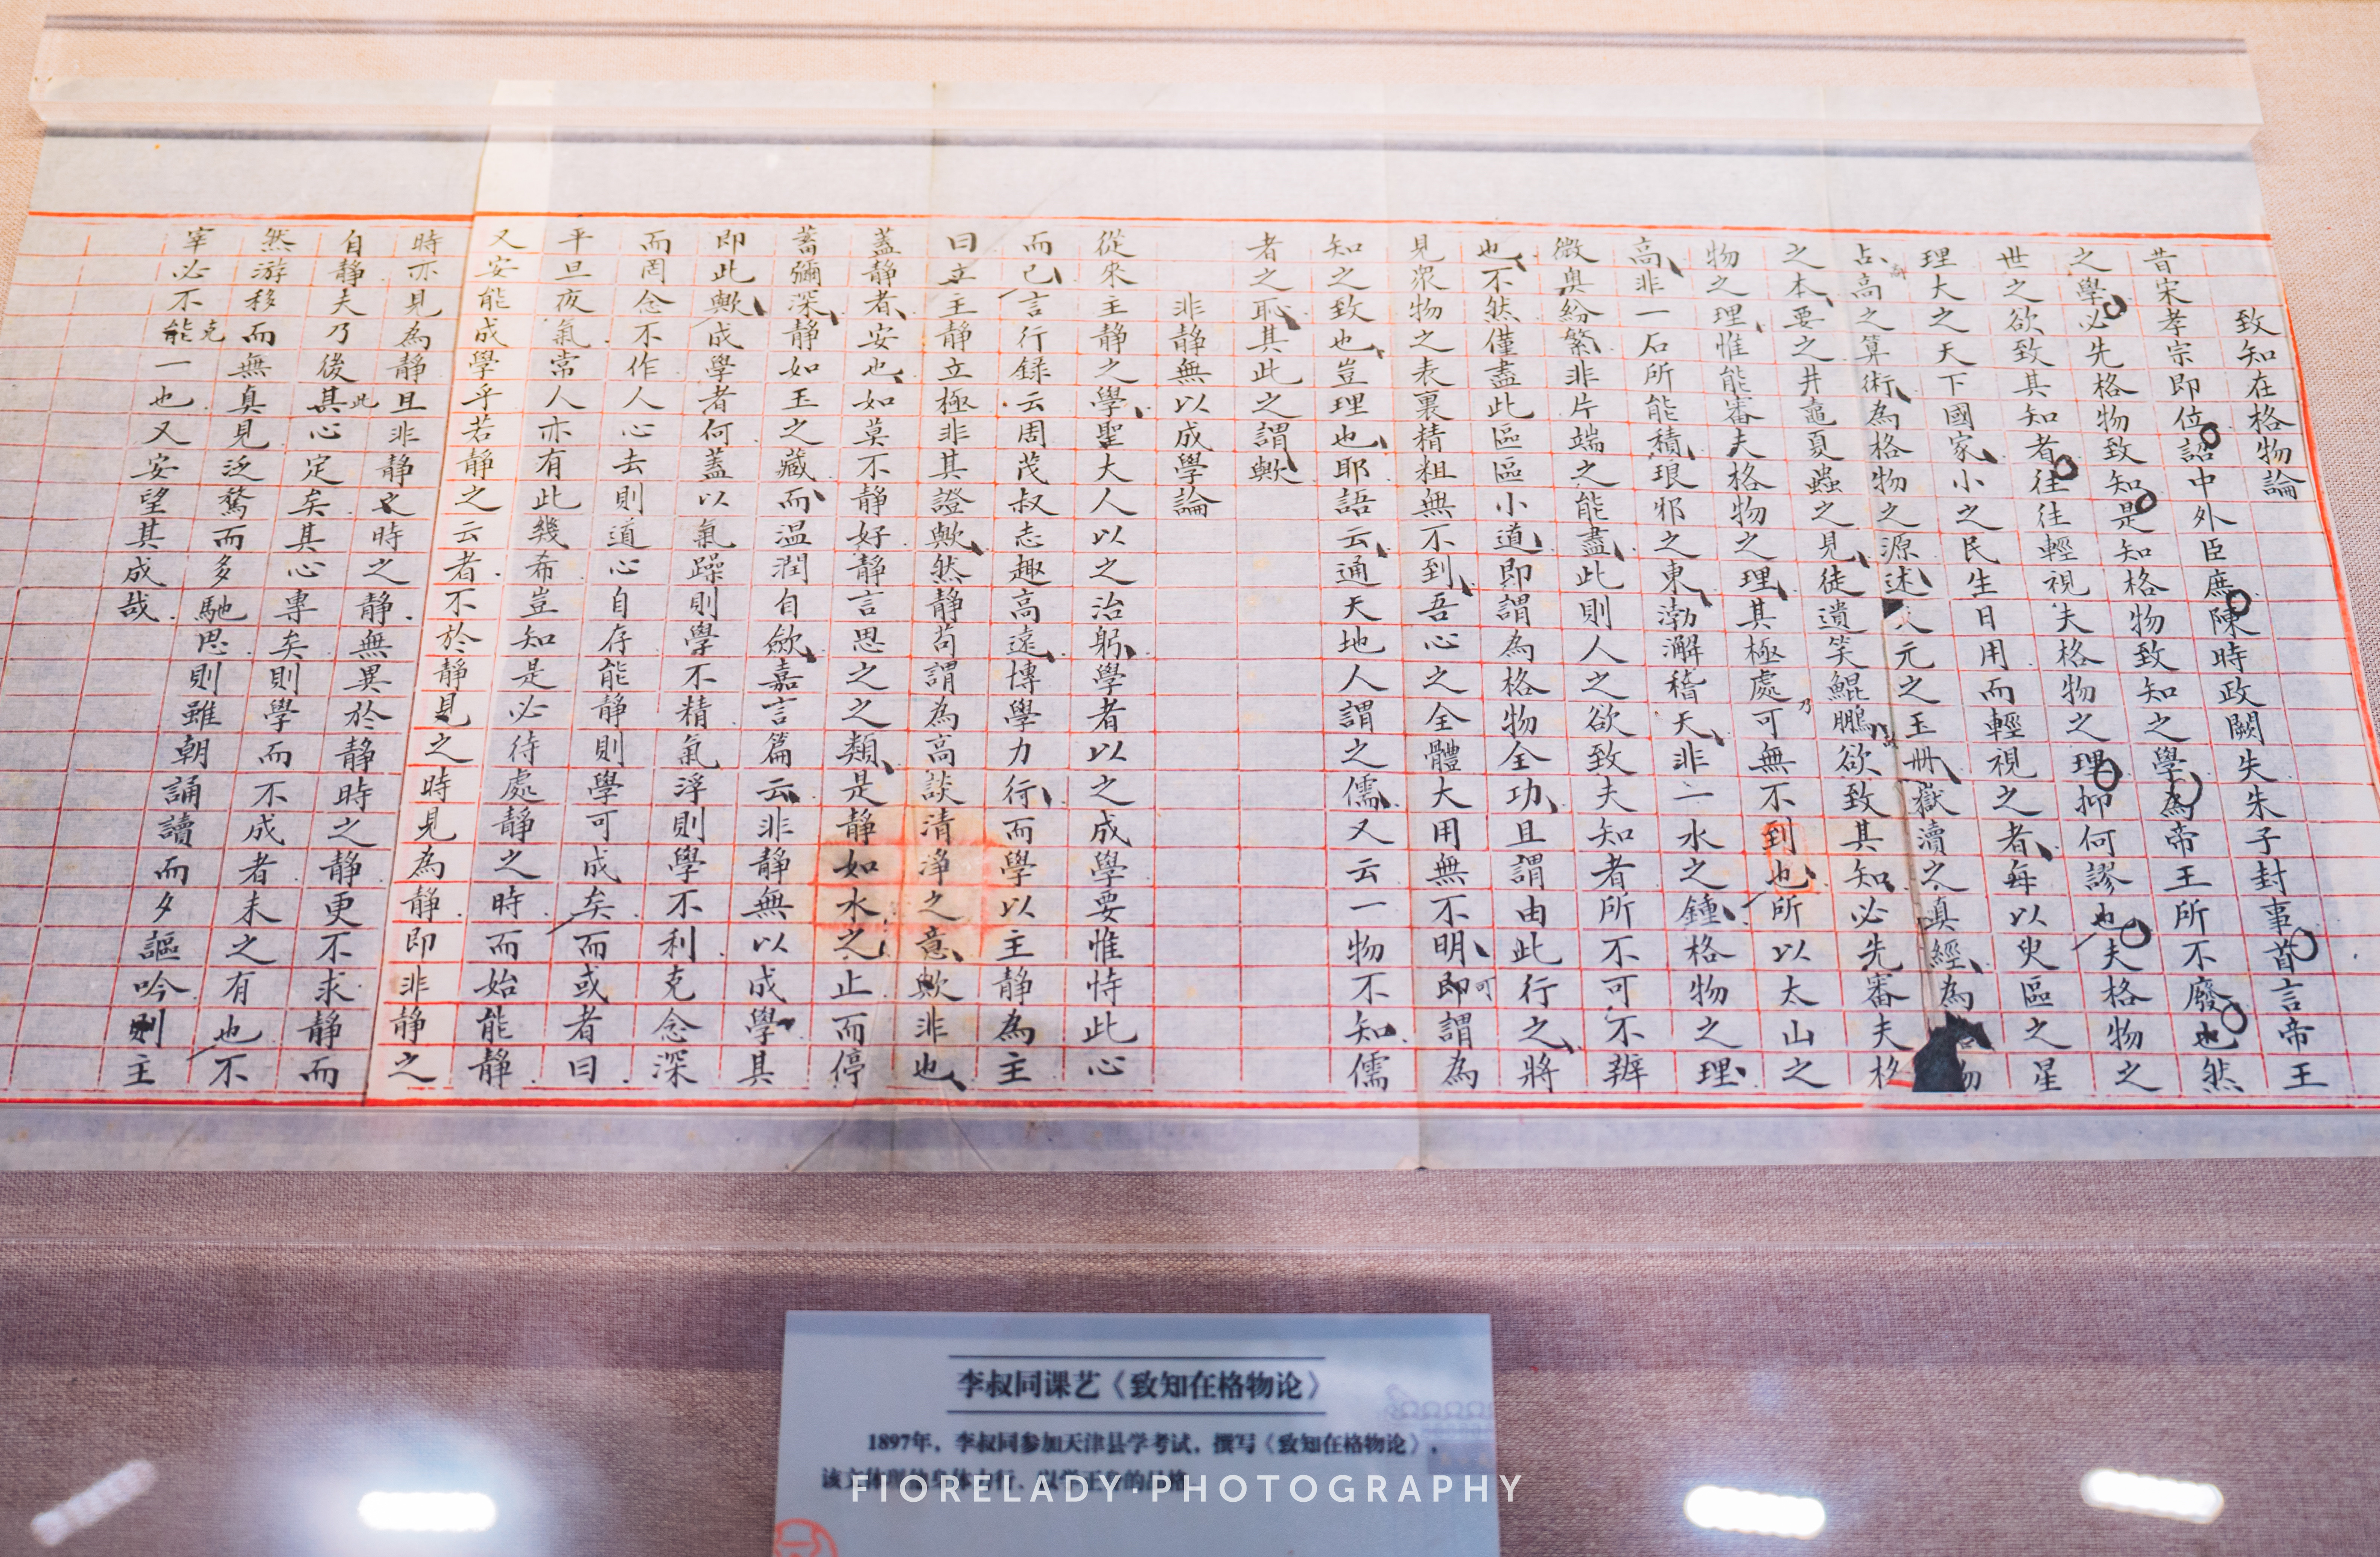 致知在格物論
昔宋孝宗即位詔中外臣庶陳時政闕失朱子封事首言帝王
之學必先格物致知是知格物致知之學為帝王所不廢也然
世之欲致其知者往往輕視夫格物之理抑何謬也夫格物之
理大之天下國家小之民生日用而輕視之者每以臾區之星
占高之算術為格物之源述元之玉冊嶽瀆之真經為物
之本要之井鼃夏蟲之見徒遺笑鯤鵬欲致其知必先審夫格
物之理惟能審夫格物之理其極處乃可無不到也所以太山之
高非一石所能積琅邪之東渤澥稽天非一水之鍾格物之理
微奧紛繁非片端之能盡此則人之欲致夫知者所不可不辨
也不然僅盡此區區小道即謂為格物全功且謂由此行之將
見眾物之表裏精粗無不到吾心之全體大用無不明即可謂為
知之致也豈理也耶語云通天地人謂之儒又云一物不知儒
者之恥其此之謂歟
非靜無以成學論
從來主靜之學聖大人以之治躬學者以之成學要惟恃此心
而已言行録云周茂叔志趣高遠博學力行而學以主靜為主
曰主靜立極非其證歟然靜苟謂為高談清淨之意歟非也
蓋靜者安也如莫不靜好靜言思之之類是靜如水之止而停
蓄彌深靜如玉之藏而温潤自歛嘉言篇云非靜無以成學其
即此歟成學者何蓋以氣躁則學不精氣浮則學不利克念深
而罔念不作人心去則道心自存能靜則學可成矣而或者曰
平旦夜氣常人亦有此幾希豈知是必待處靜之時而始能靜
又安能成學乎若靜之云者不於靜見之時見為靜即非靜之
時亦見為靜且非靜之時之靜無異於靜時之靜更不求靜而
自靜夫乃後其此心定矣其心專矣則學而不成者未之有也不
然游移而無真見泛騖而多馳思則雖朝誦讀而夕謳吟則主
宰必不能克一也又安望其成哉
李叔同课艺《致知在格物论》
1897年，李叔同参加天津县学考试，撰写《致知在格物论》，
FIORELADY·PHOTOGRAPHY